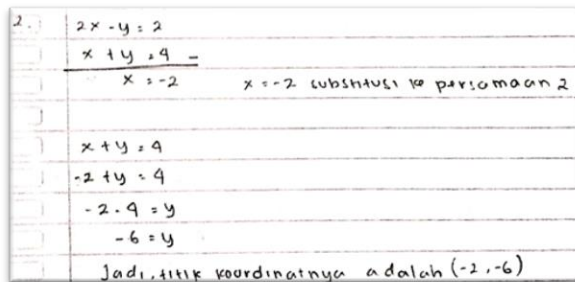 2. 2x - y = 2
x + y = 4 -
x = -2 x = -2 substitusi ke persamaan 2
x + y = 4
-2 + y = 4
-2 - 4 = y
-6 = y
Jadi, titik koordinatnya adalah (-2, -6)